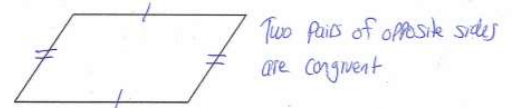 Two pairs of opposite sides
are congruent